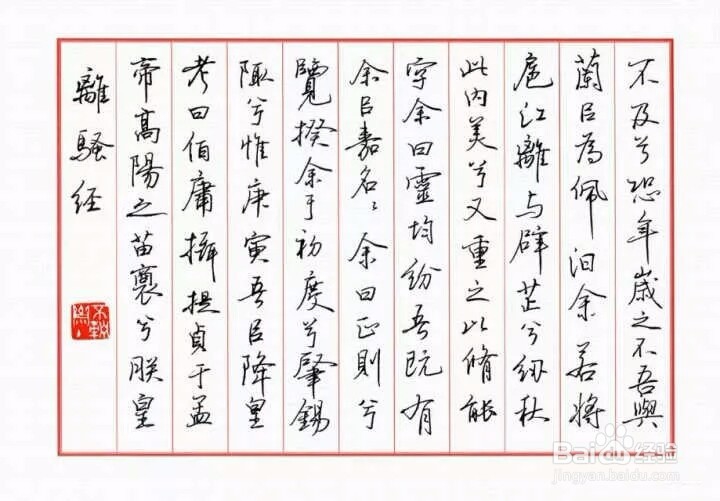 離騷经
帝高陽之苗裔兮朕皇
考曰伯庸攝提貞于孟
陬兮惟庚寅吾㠯降皇
覽揆余于初度兮肇錫
余㠯嘉名〻余曰正則兮
字余曰靈均紛吾既有
此内美兮又重之以脩能
扈江離与辟芷兮纫秋
蘭㠯為佩汩余若将
不及兮恐年歲之不吾與
Baidu经验
jingyan.baidu.com